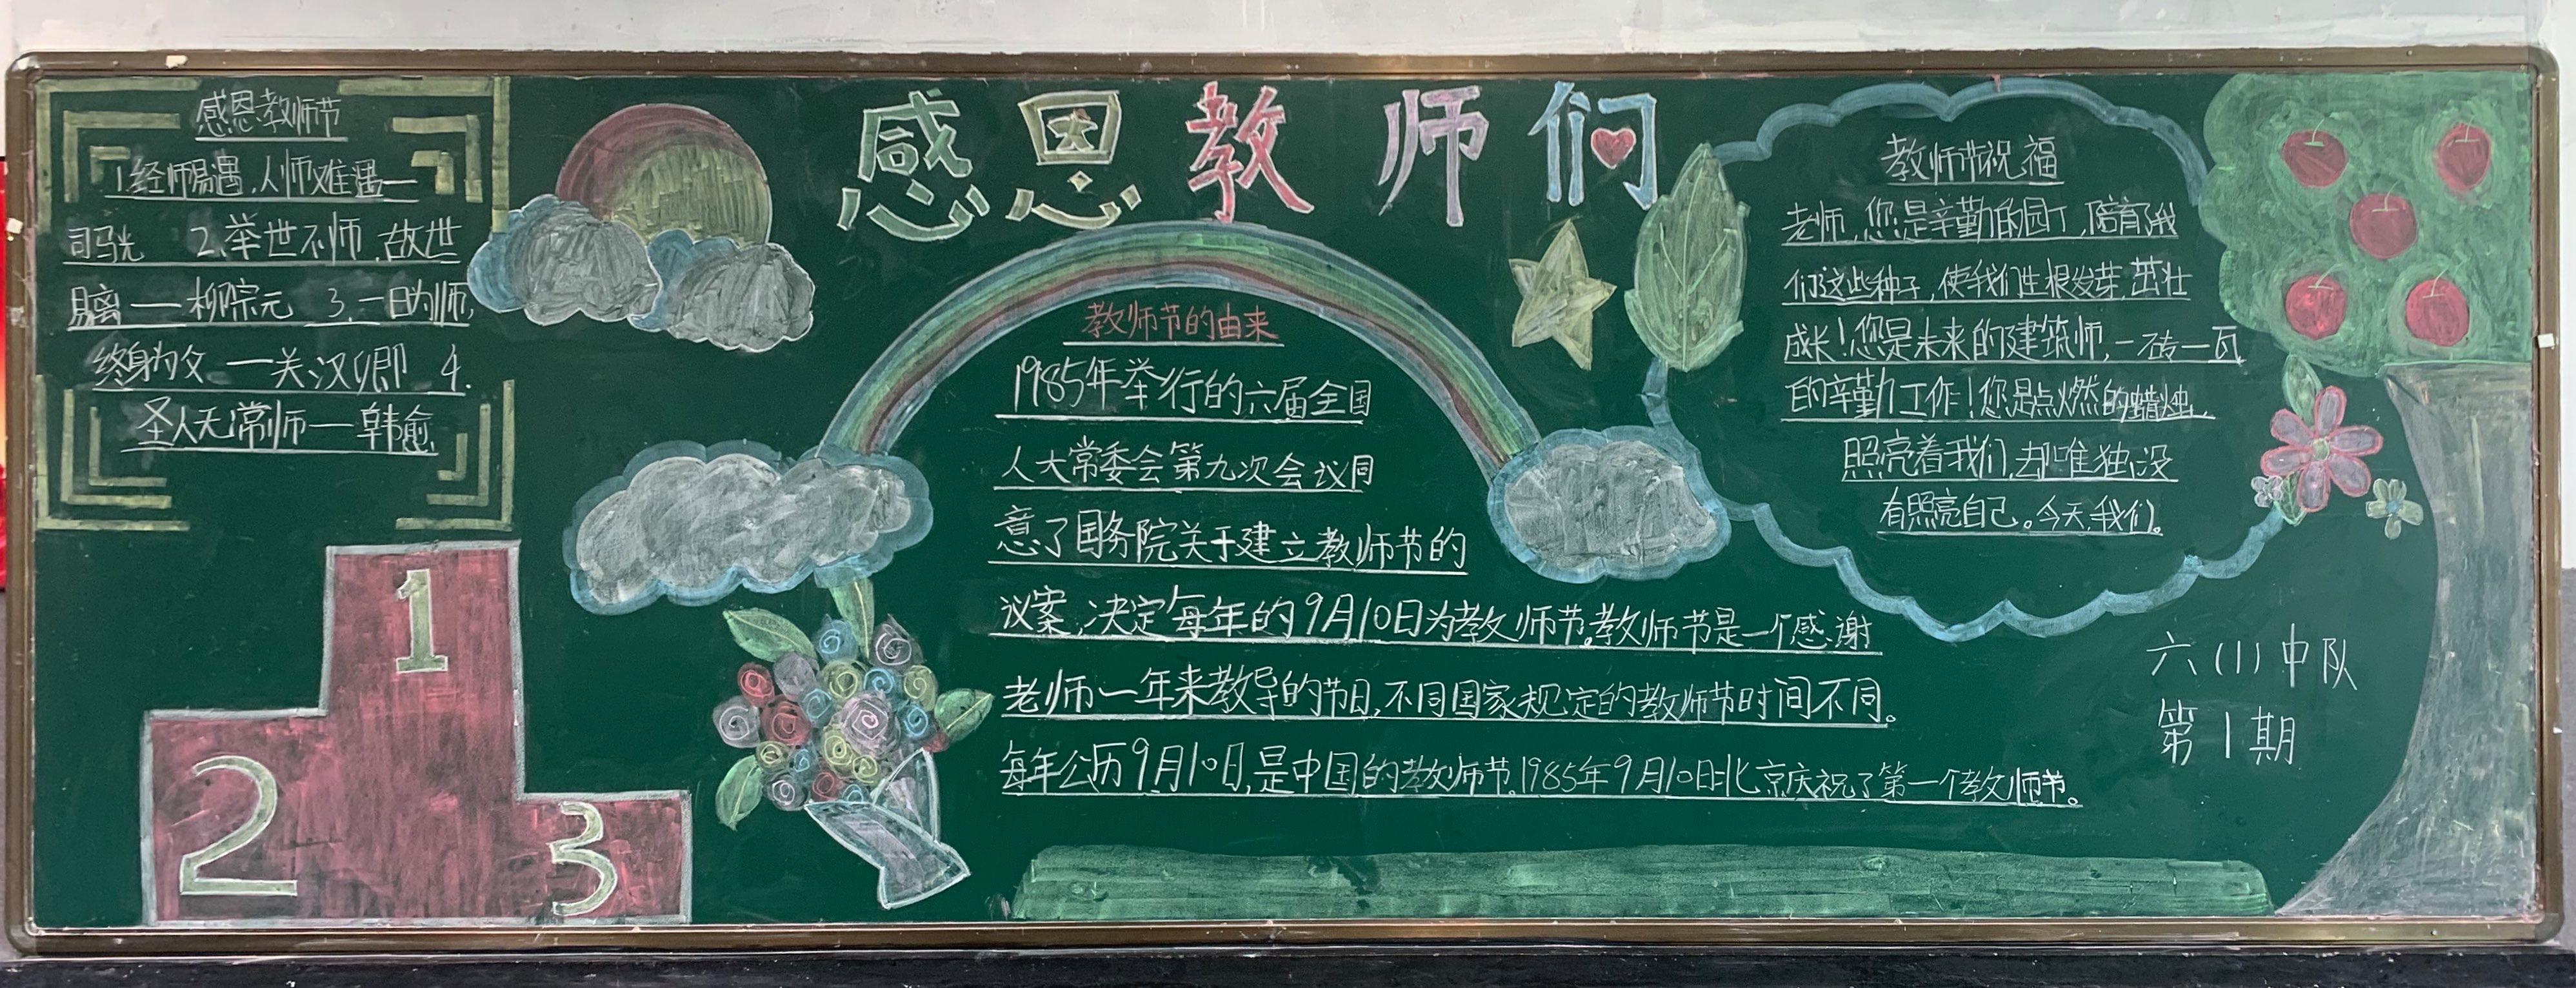 感恩教师们
感恩教师节
1.经师易遇,人师难遇一
司马光 2.举世不师,故世
离 — 柳宗元 3.一日为师,
终身为父 一关汉卿 4.
圣人无常师一韩愈
1
2
3
教师节的由来
1985年举行的六届全国
人大常委会第九次会议同
意了国务院关于建立教师节的
议案,决定每年的9月10日为教师节。教师节是一个感谢
老师一年来教导的节日,不同国家规定的教师节时间不同。
每年公历9月10日,是中国的教师节。1985年9月10日北京庆祝了第一个教师节。
教师节祝福
老师,您是辛勤的园丁,陪育我
们这些种子,使我们生根发芽,茁壮
成长!您是未来的建筑师,一砖一瓦
的辛勤工作!您是点燃的蜡烛,
照亮着我们,却唯独没
有照亮自己。今天,我们。
六(1)中队
第1期